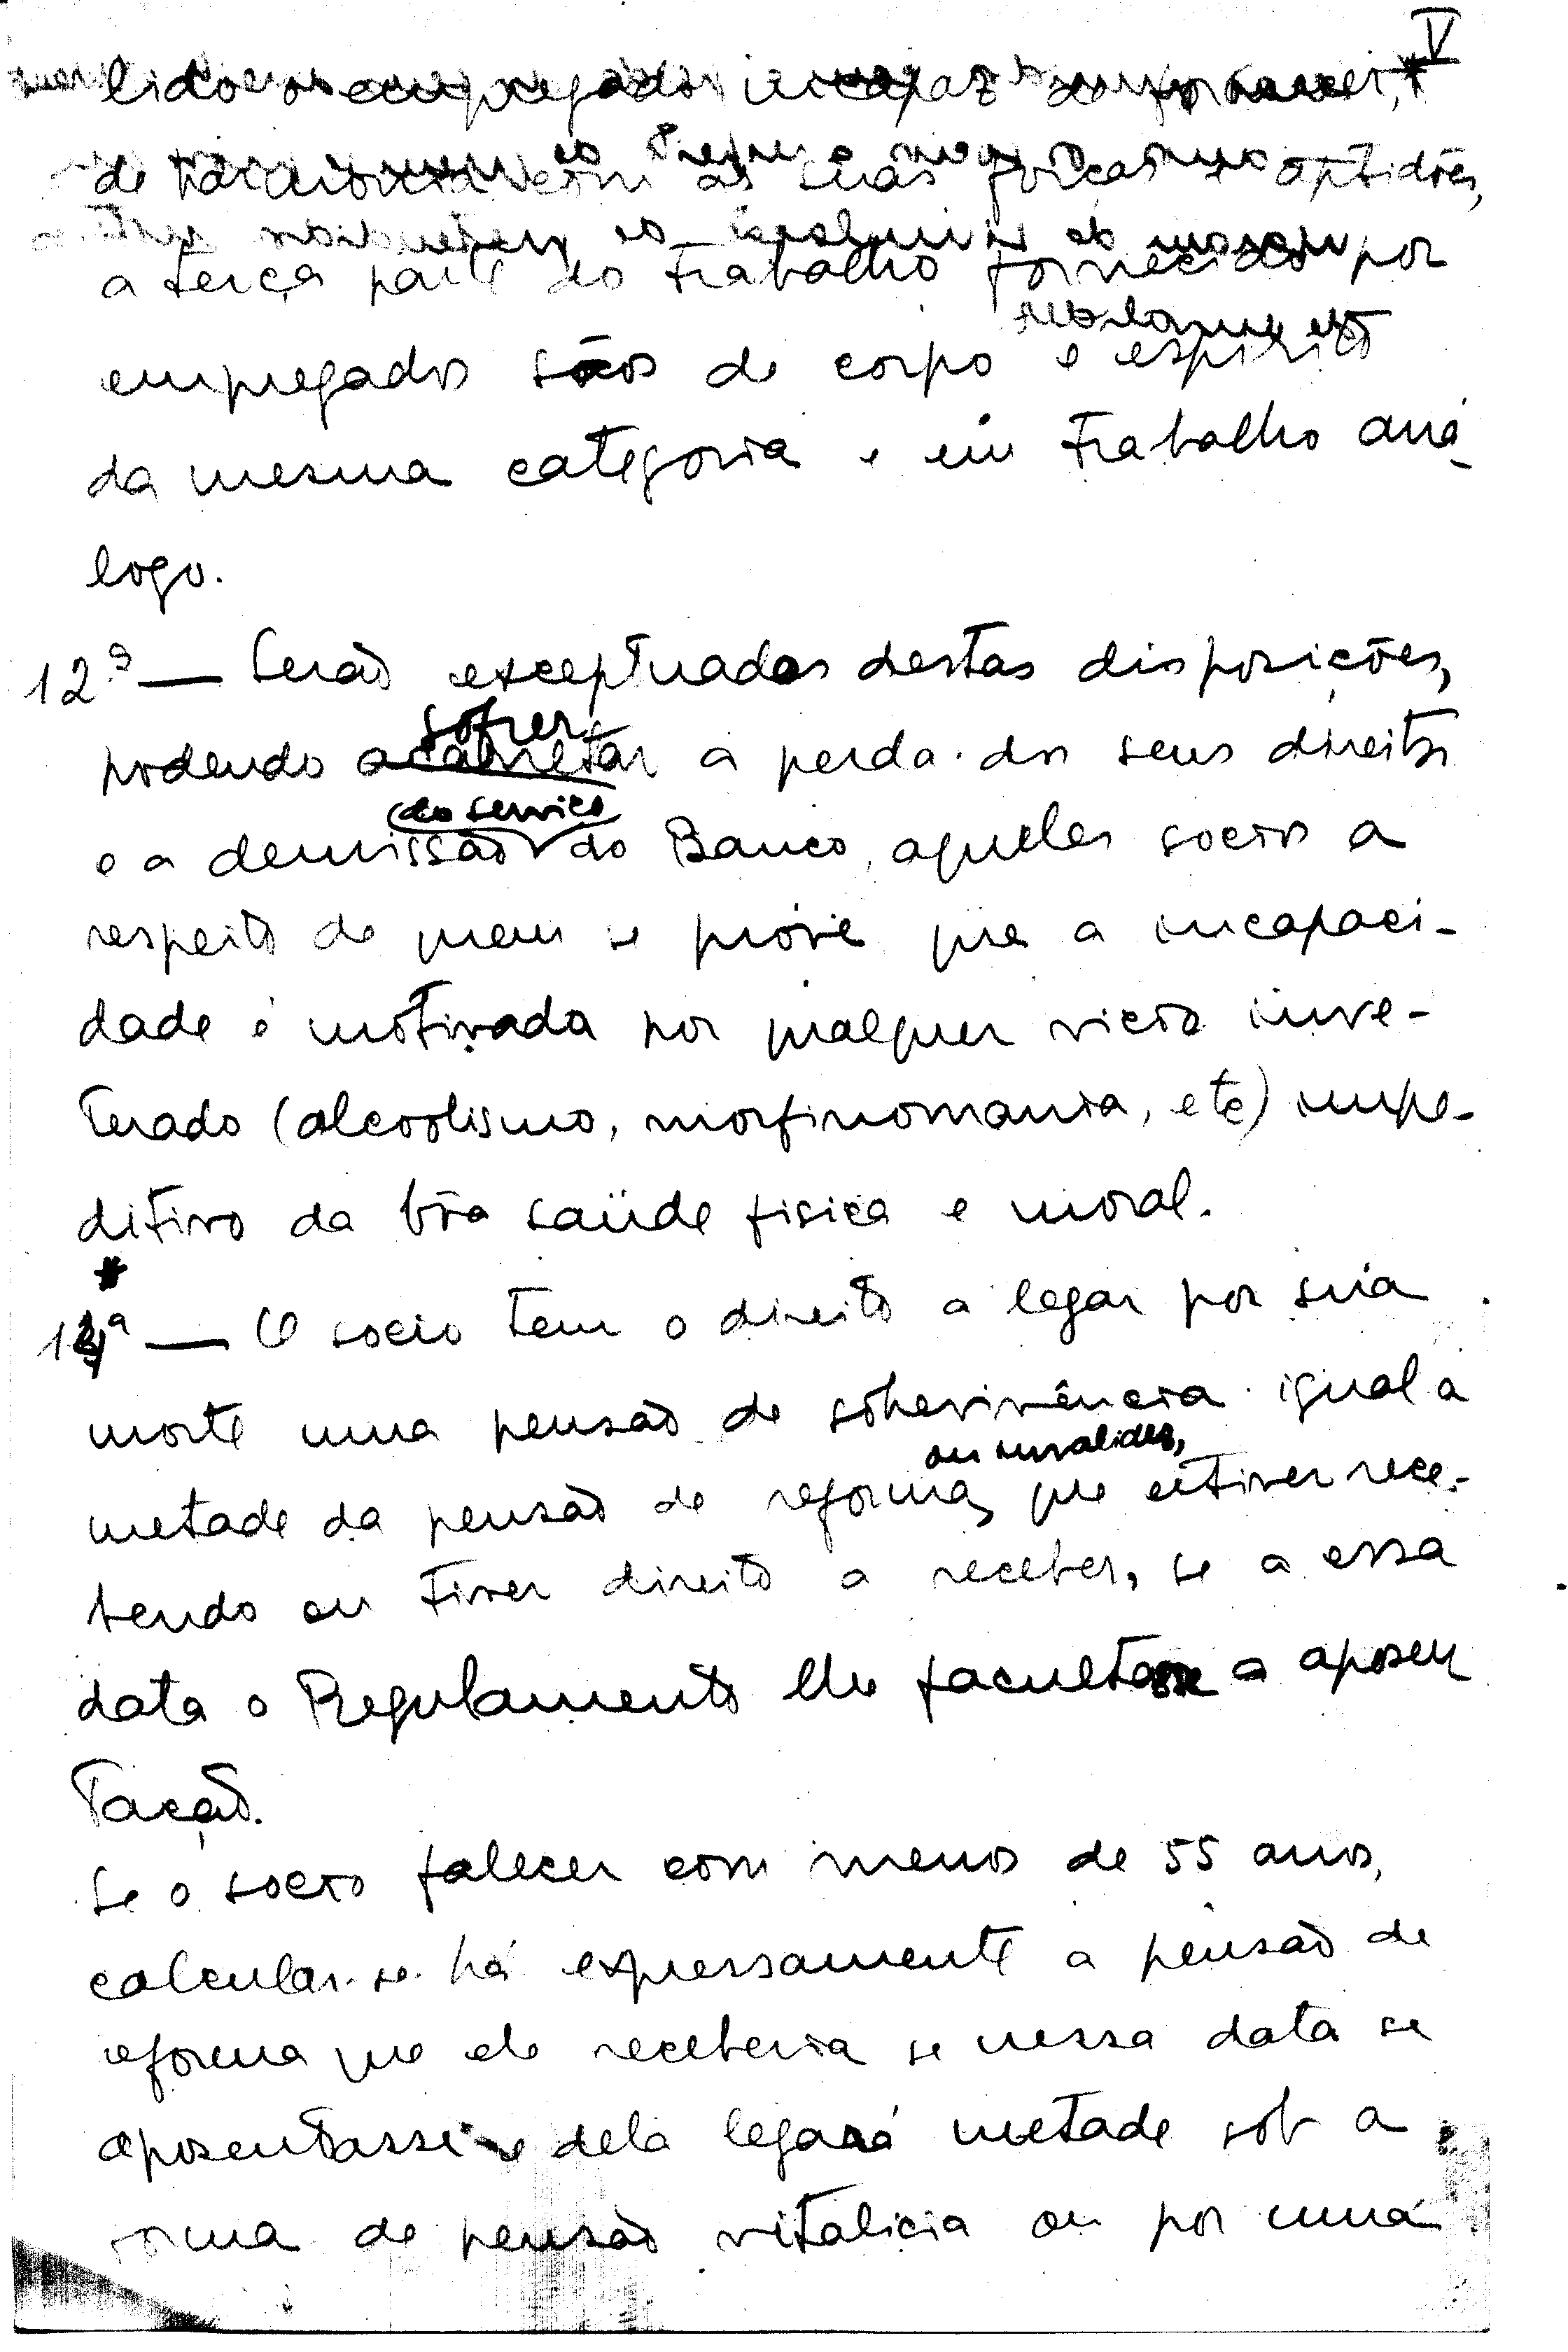 V
lido o empregado incapaz de fornecer,
de harmonia com as suas forças e aptidões,
a terça parte do trabalho fornecido por
empregados sãos de corpo e espirito
da mesma categoria e em trabalho aná-
logo.
12ª — Serão exceptuados destas disposições,
sofrer
podendo acarretar a perda dos seus direitos
do serviço
e a demissão do Banco, aqueles socios a
respeito de quem se próve que a incapaci-
dade é motivada por qualquer vicio inve-
terado (alcoolismo, morfinomania, etc) impe-
ditivo da bôa saüde fisica e moral.
*
13ª — O socio tem o direito a legar por sua
morte uma pensão de sobrevivência igual a
ou invalidez,
metade da pensão de reforma, que estiver rece-
bendo ou tiver direito a receber, se a essa
data o Regulamento lhe facultasse a aposen
tação.
Se o socio falecer com menos de 55 anos,
calcular-se-há expressamente a pensão de
reforma que ele receberia se nessa data se
aposentasse e dela legará metade sob a
forma de pensão vitalicia ou por uma